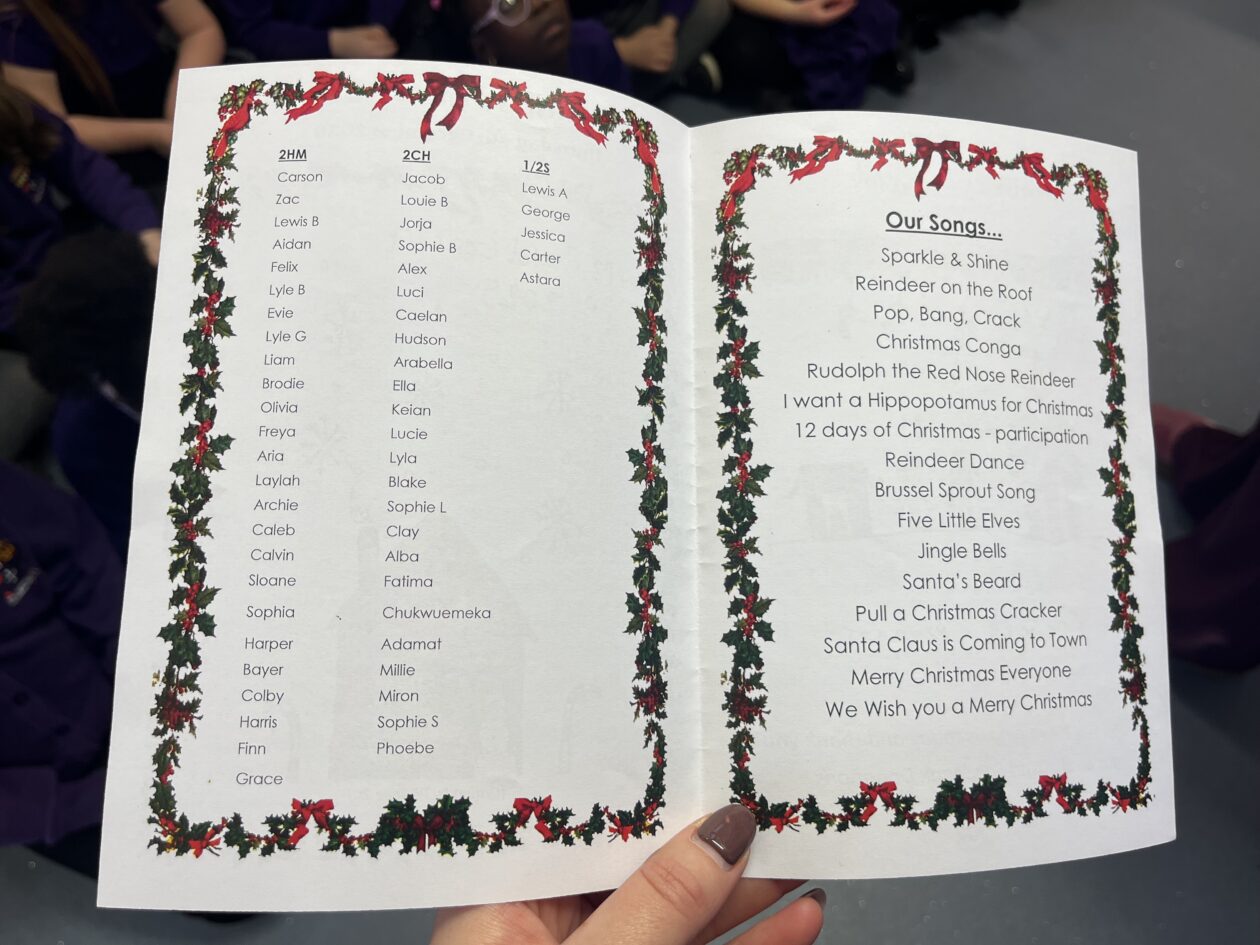 2HM
Carson
Zac
Lewis B
Aidan
Felix
Lyle B
Evie
Lyle G
Liam
Brodie
Olivia
Freya
Aria
Laylah
Archie
Caleb
Calvin
Sloane
Sophia
Harper
Bayer
Colby
Harris
Finn
Grace
2CH
Jacob
Louie B
Jorja
Sophie B
Alex
Luci
Caelan
Hudson
Arabella
Ella
Keian
Lucie
Lyla
Blake
Sophie L
Clay
Alba
Fatima
Chukwuemeka
Adamat
Millie
Miron
Sophie S
Phoebe
1/2S
Lewis A
George
Jessica
Carter
Astara
Our Songs...
Sparkle & Shine
Reindeer on the Roof
Pop, Bang, Crack
Christmas Conga
Rudolph the Red Nose Reindeer
I want a Hippopotamus for Christmas
12 days of Christmas - participation
Reindeer Dance
Brussel Sprout Song
Five Little Elves
Jingle Bells
Santa's Beard
Pull a Christmas Cracker
Santa Claus is Coming to Town
Merry Christmas Everyone
We Wish you a Merry Christmas